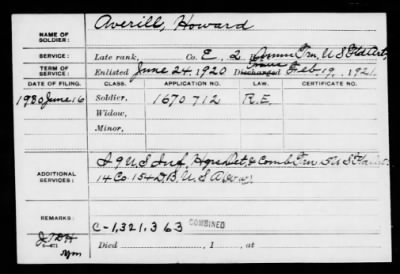 Averill, Howard
NAME OF SOLDIER:
SERVICE: Late rank, Co. E, 2 Ammn Trn, U S Fld Art,
TERM OF SERVICE: Enlisted June 24, 1920 Discharged Feb. 19, 1921.
DATE OF FILING. CLASS. APPLICATION NO. LAW. CERTIFICATE NO.
1930 June 16 Soldier, 1670712 R.E.
Widow,
Minor,
ADDITIONAL SERVICES: I 9 U S Inf, Hqrs Det, & Comb Trn 5 U S
14 Co. 154 D.B. U S Army
REMARKS: C-1,321,363 COMBINED
Died , 1 , at